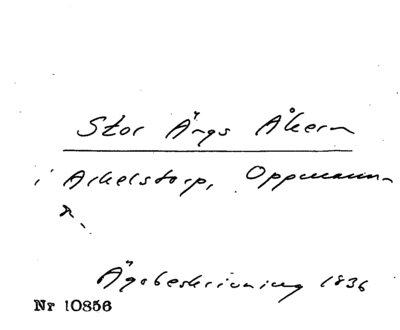 Stor Ängs Åkern
i Arkelstorp, Oppmanna
Ägobeskrivning 1836
Nr 10856